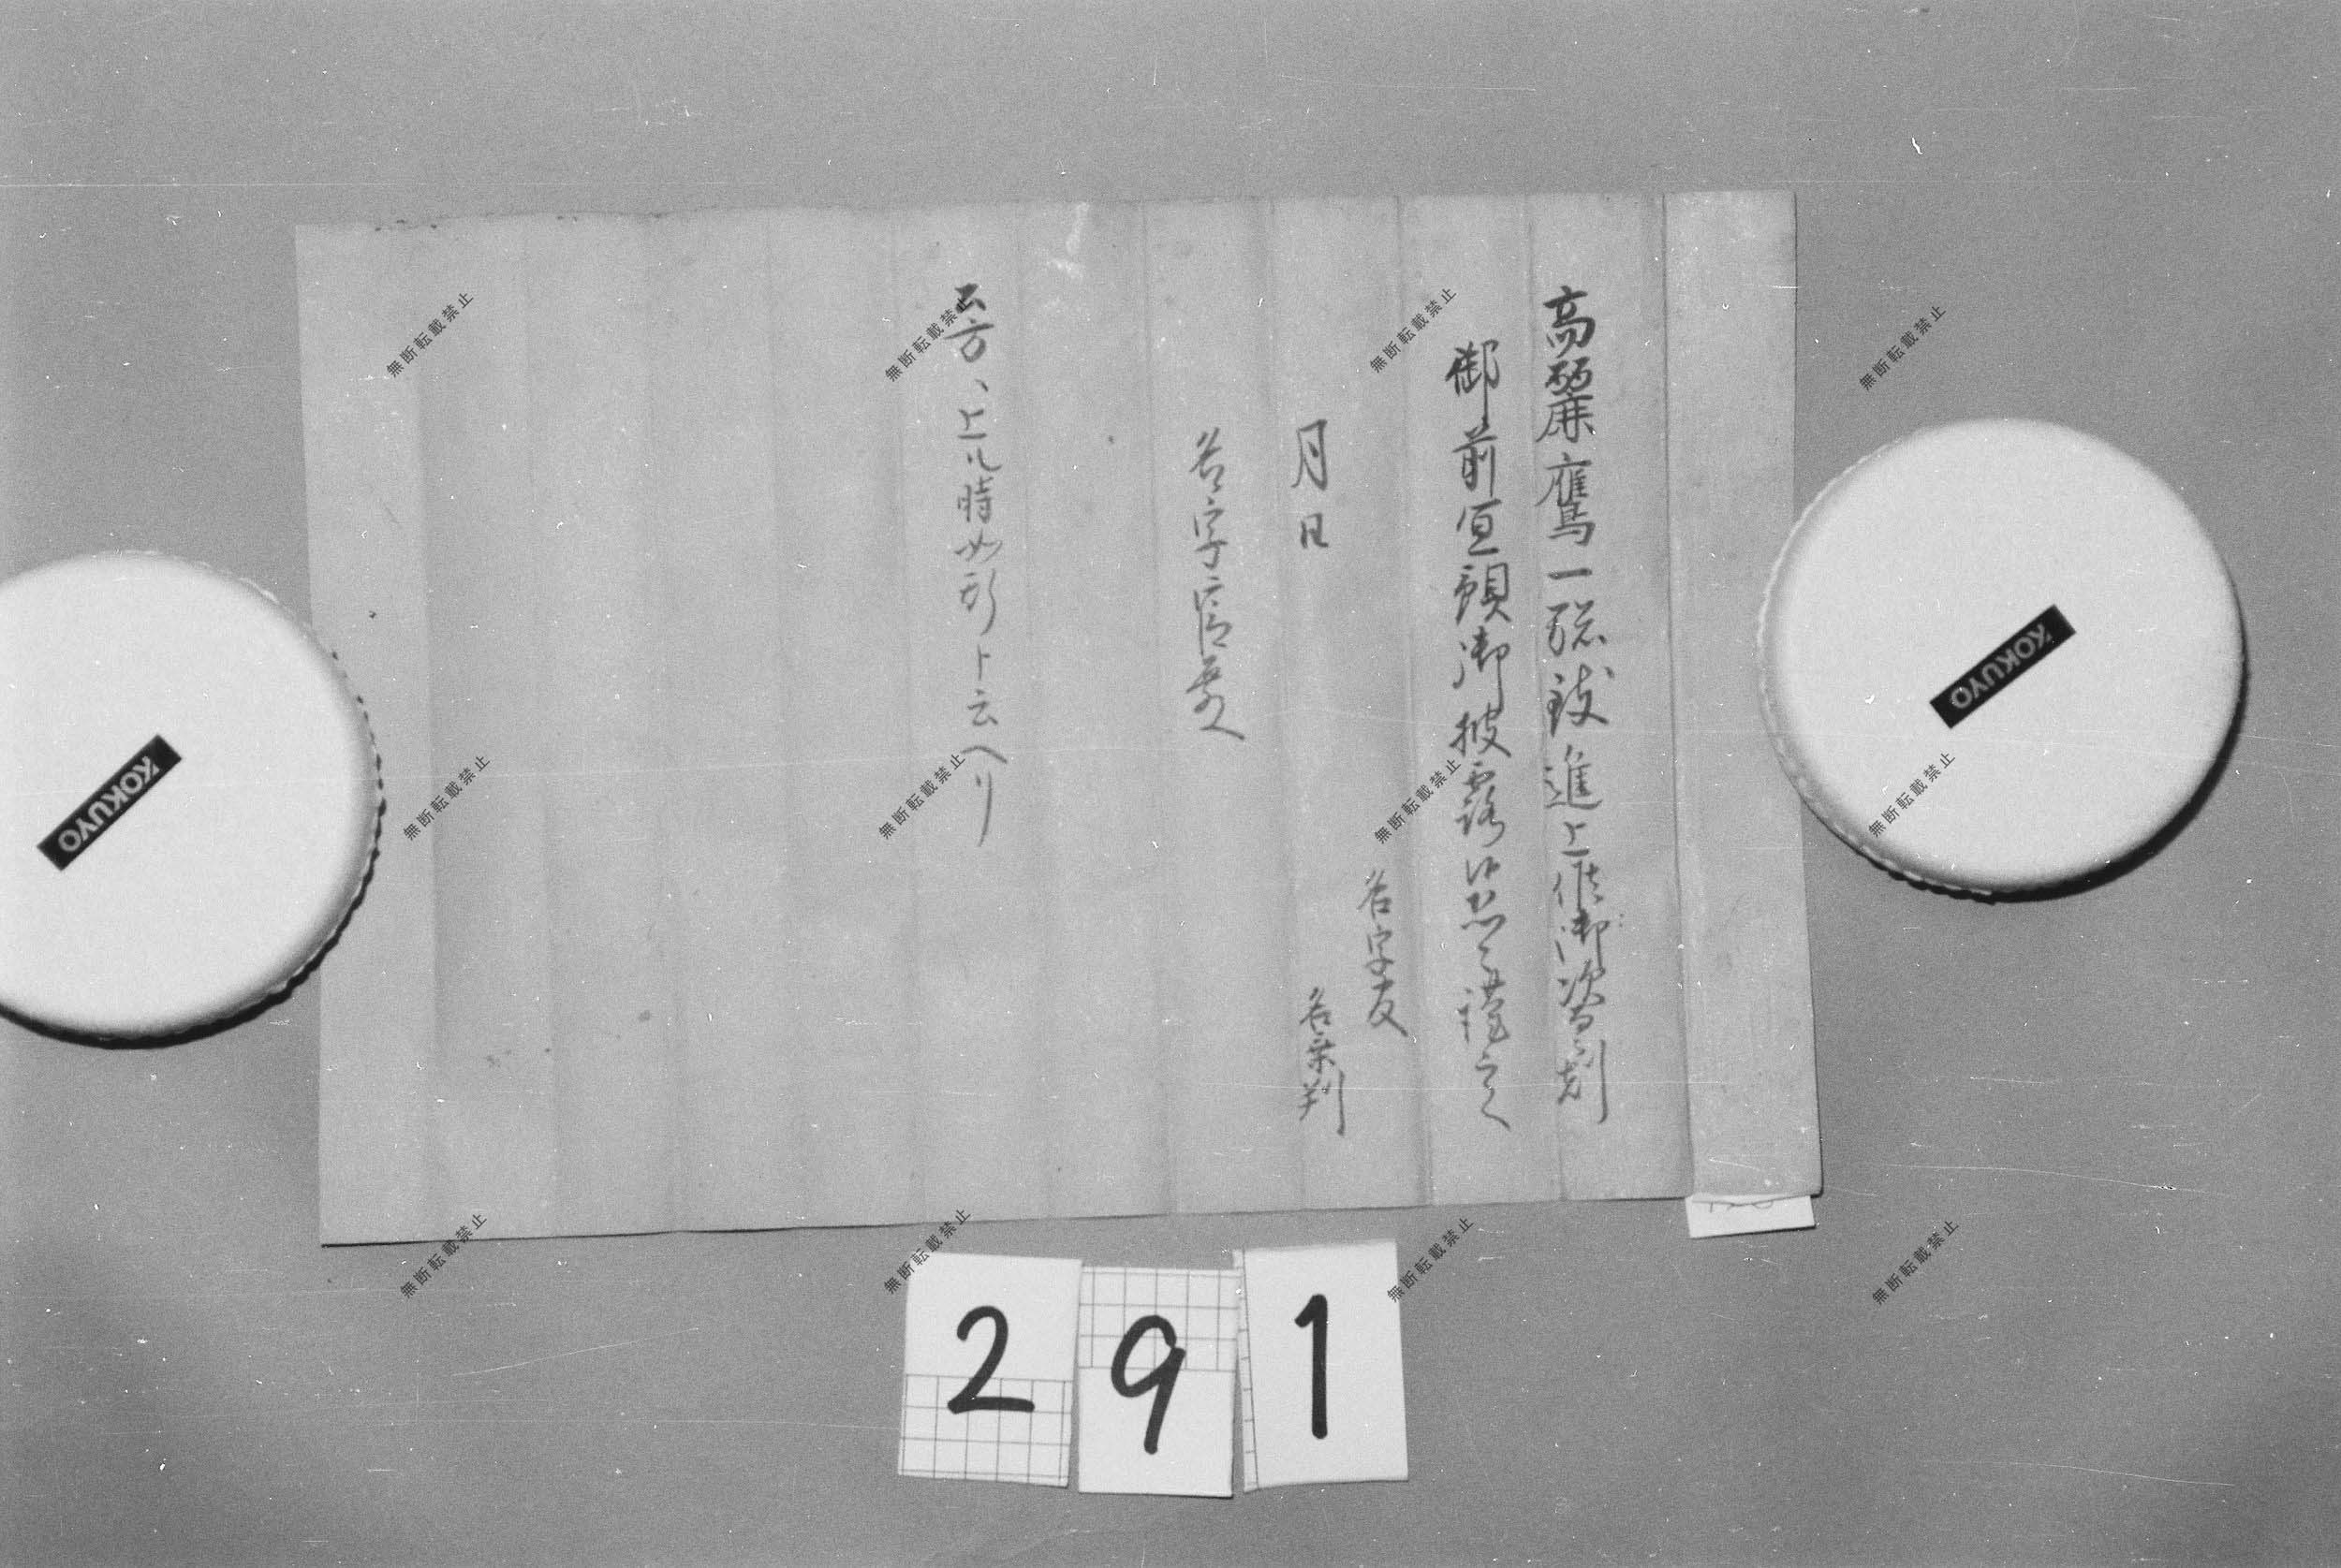 高麗鷹一聯致進上候御次当刻
御前宜預御披露候恐々謹言
名字友
月日
名乗判
名字官
公方、上ル時如形ト云ヘリ
291
KOKUYO
KOKUYO
無断転載禁止
無断転載禁止
無断転載禁止
無断転載禁止
無断転載禁止
無断転載禁止
無断転載禁止
無断転載禁止
無断転載禁止
無断転載禁止
無断転載禁止
無断転載禁止